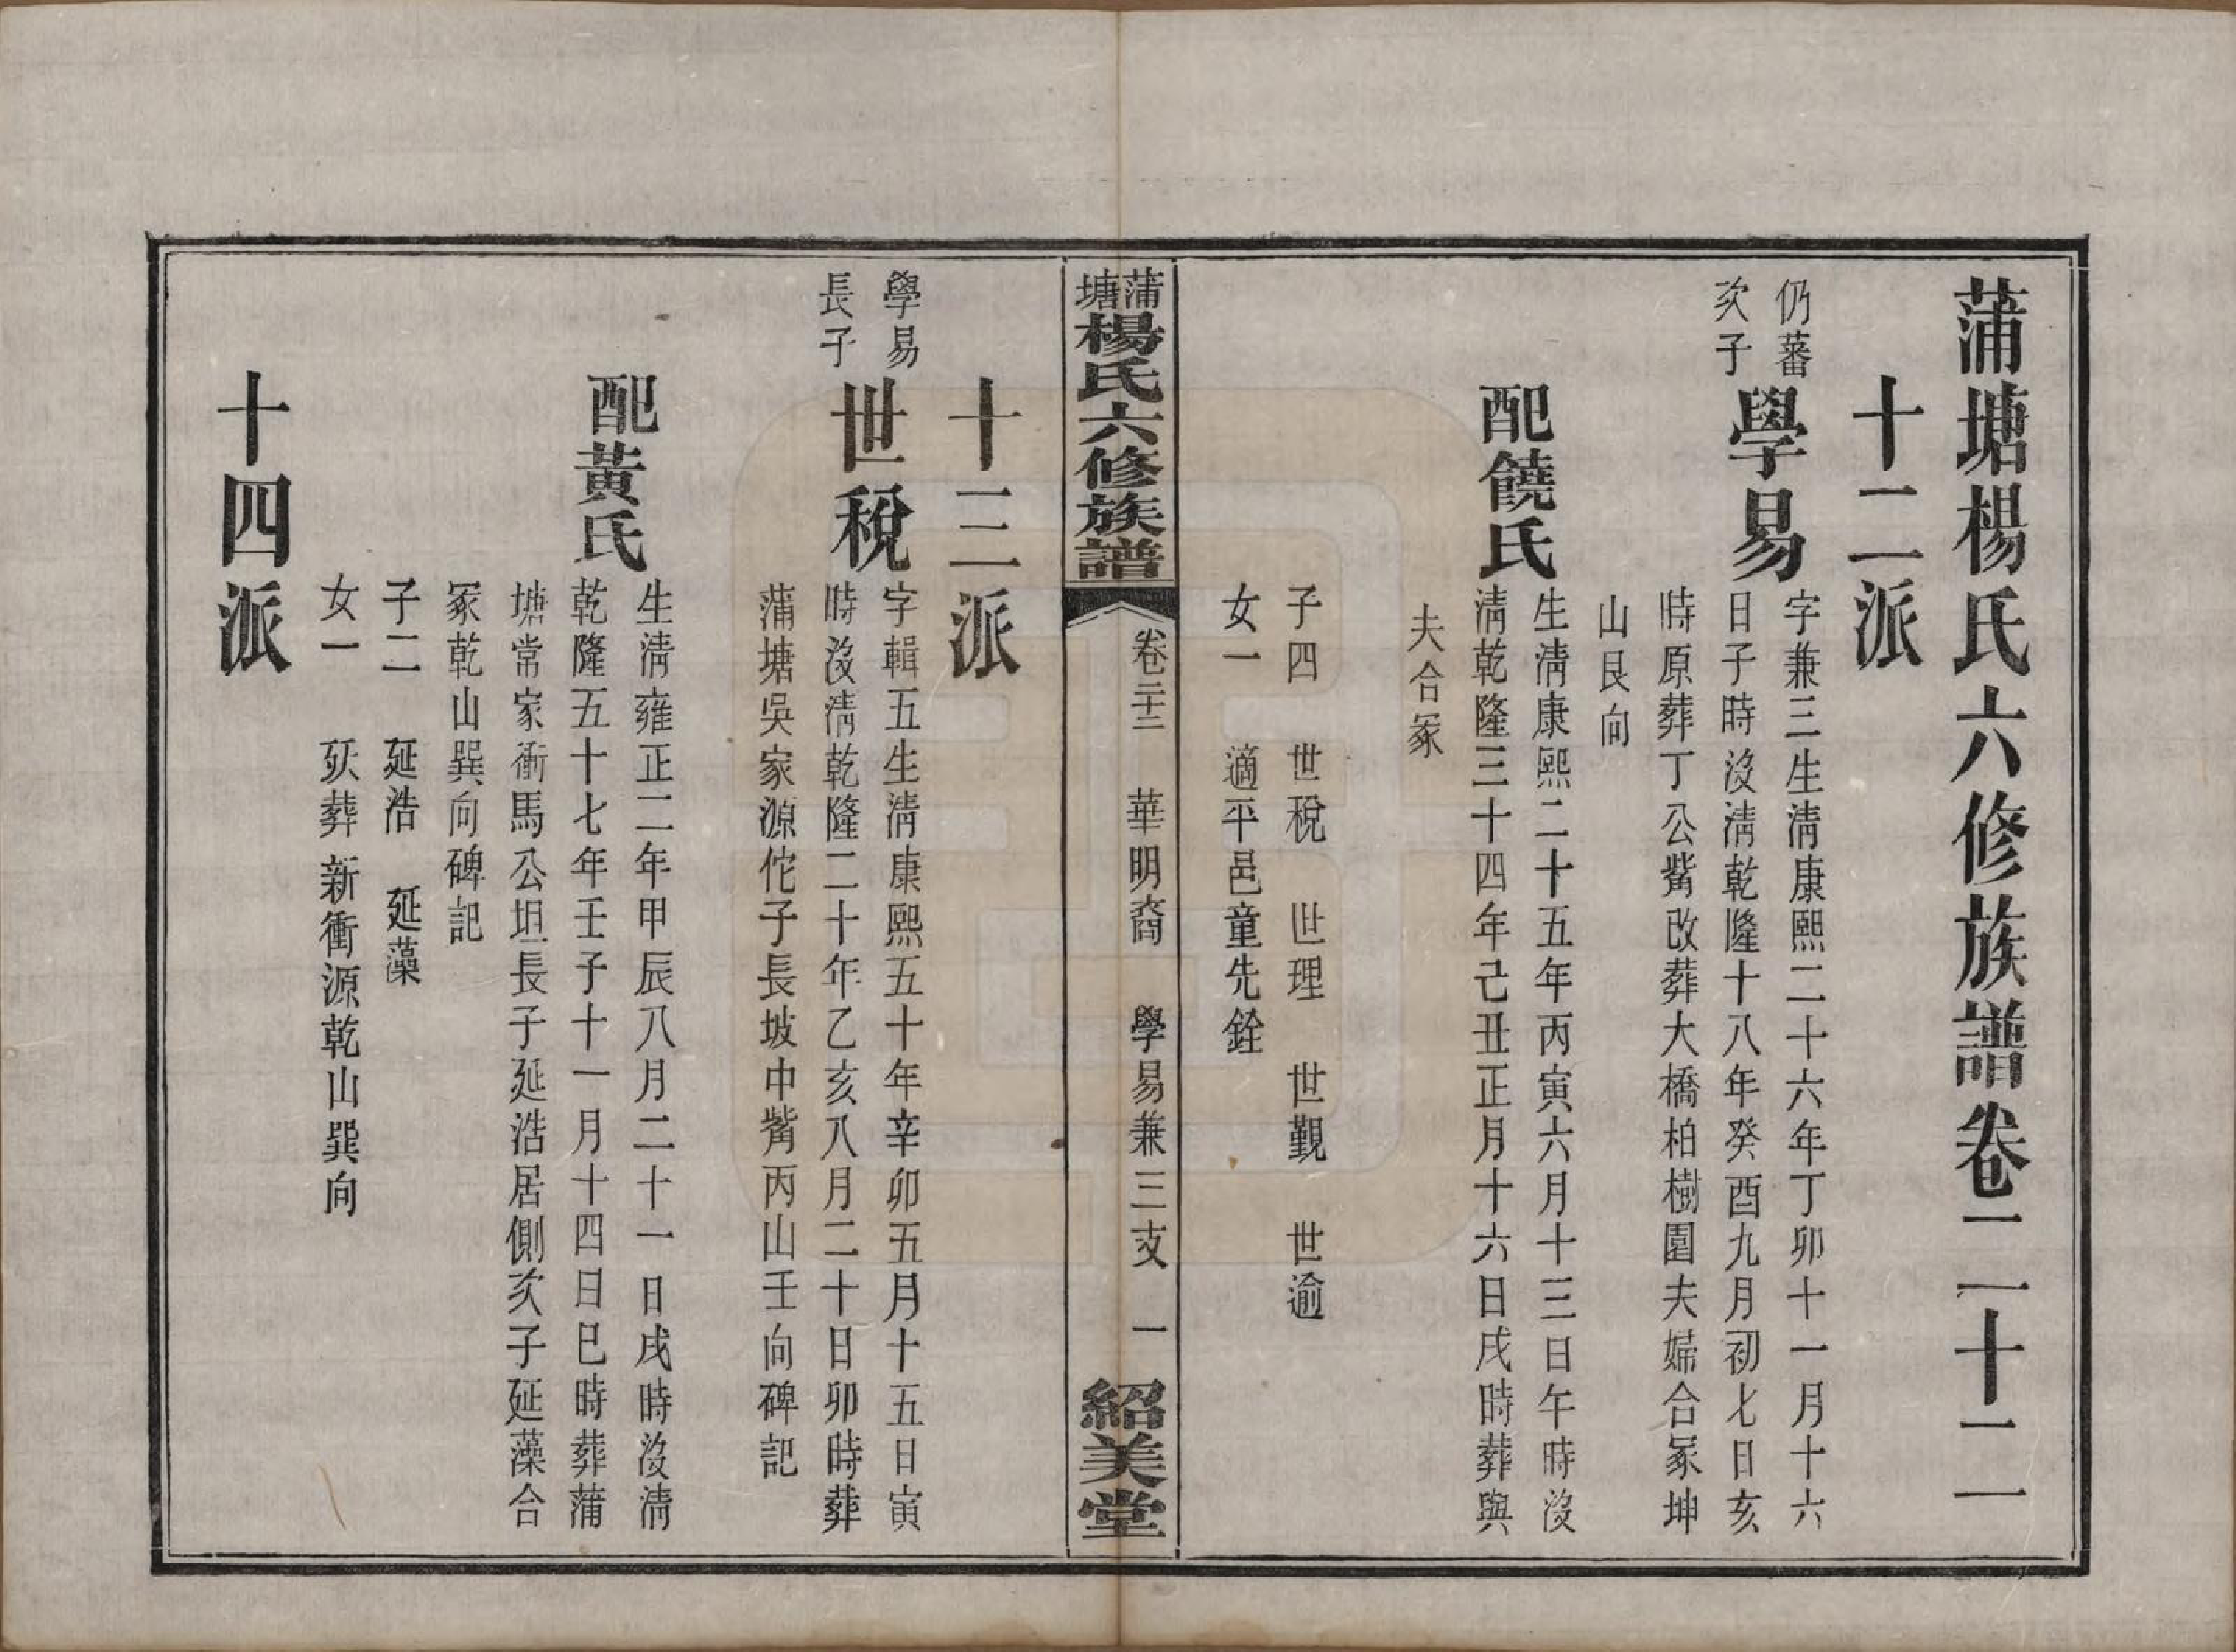 蒲塘楊氏六修族譜卷二十二
十二派
仍蕃
次子
學易
字兼三生清康熙二十六年丁卯十一月十六
日子時沒清乾隆十八年癸酉九月初七日亥
時原葬丁公觜改葬大橋柏樹園夫婦合冢坤
山艮向
配饒氏
生清康熙二十五年丙寅六月十三日午時沒
清乾隆三十四年己丑正月十六日戌時葬與
夫合冢
子四 世稅 世理 世觀 世逾
女一 適平邑童先銓
蒲塘楊氏六修族譜
卷二十二 華明裔 學易兼三支 一
紹美堂
十三派
學易
長子
世稅
字輯五生清康熙五十年辛卯五月十五日寅
時沒清乾隆二十年乙亥八月二十日卯時葬
蒲塘吳家源佗子長坡中觜丙山壬向碑記
配黃氏
生清雍正二年甲辰八月二十一日戌時沒清
乾隆五十七年壬子十一月十四日巳時葬蒲
塘常家衝馬公坦長子延浩居側次子延藻合
冢乾山巽向碑記
子二 延浩 延藻
女一 殀葬新衝源乾山巽向
十四派